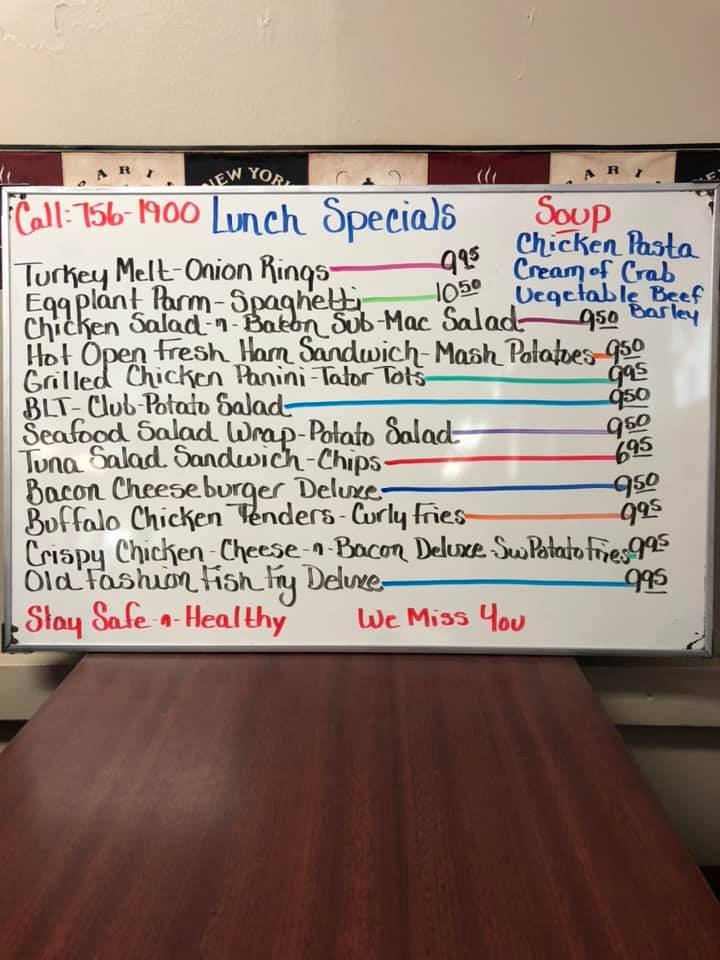 ARI
NEW YOR
ARI
Call: 756-1900 Lunch Specials
Soup
Chicken Pasta
Cream of Crab
Vegetable Beef
Barley
Turkey Melt-Onion Rings 9.95
Eggplant Parm-Spaghetti 10.50
Chicken Salad-n-Bacon Sub-Mac Salad 9.50
Hot Open Fresh Ham Sandwich-Mash Potatoes 9.50
Grilled Chicken Panini-Tator Tots 9.95
BLT-Club-Potato Salad 9.50
Seafood Salad Wrap-Potato Salad 9.50
Tuna Salad Sandwich-Chips 6.95
Bacon Cheeseburger Deluxe 9.50
Buffalo Chicken Tenders-Curly Fries 9.95
Crispy Chicken-Cheese-n-Bacon Deluxe-Sw Potato Fries 9.95
Old Fashion Fish Fry Deluxe 9.95
Stay Safe-n-Healthy We Miss You